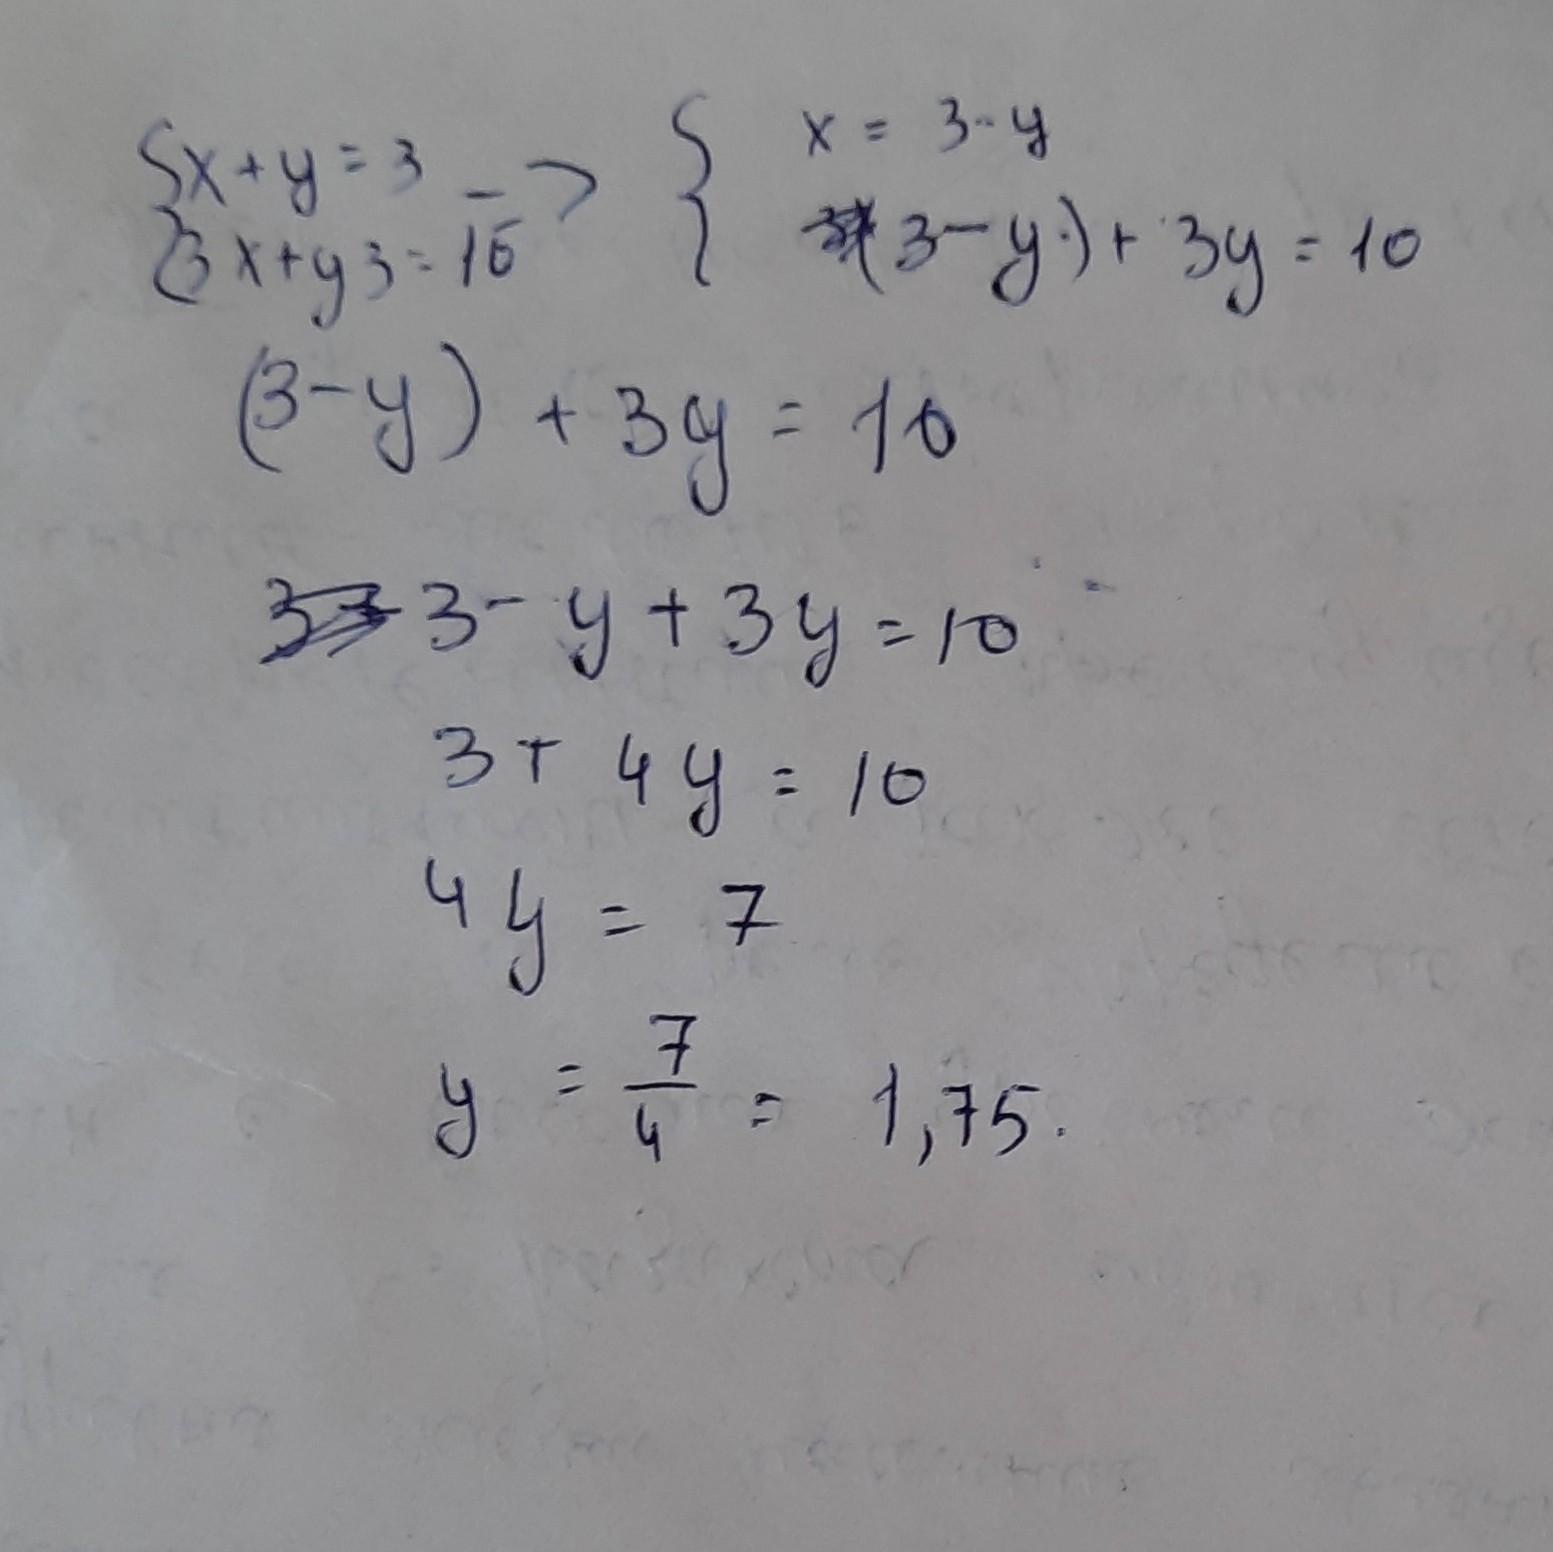 {x+y=3 => { x = 3-y
{3x+y3=10 { (3-y)+3y=10
(3-y) + 3y = 10
3-y+3y=10
3+4y=10
4y = 7
y = 7/4 = 1,75.